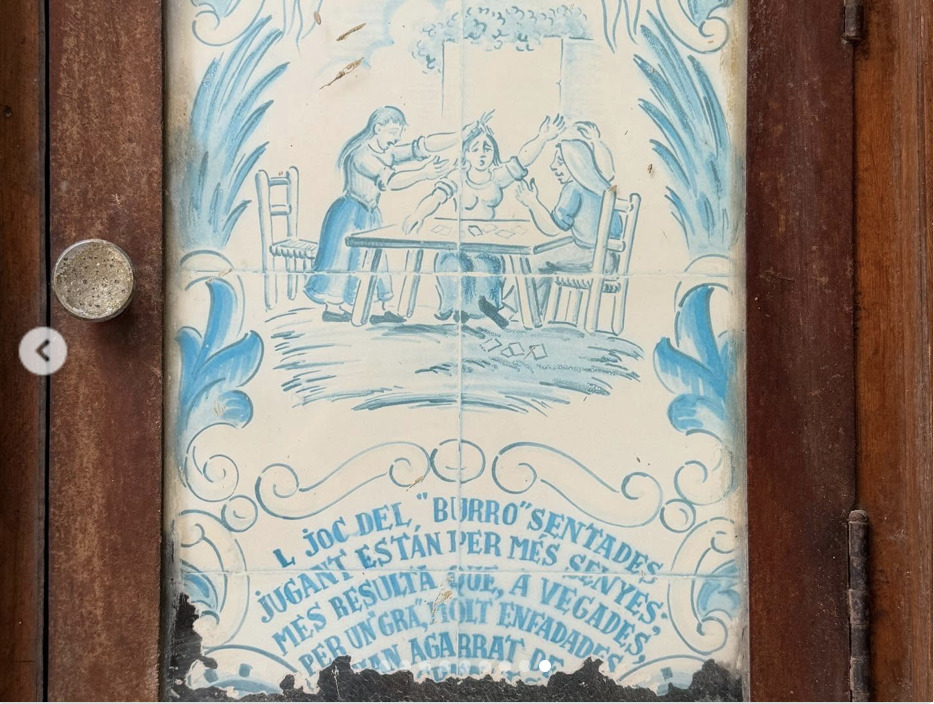 L JOC DEL "BURRO" SENTADES
JUGANT ESTÁN PER MÉS SENYES;
MES RESULTA QUE, A VEGADES,
PER UN "GRA", MOLT ENFADADES
AGARRAT DE